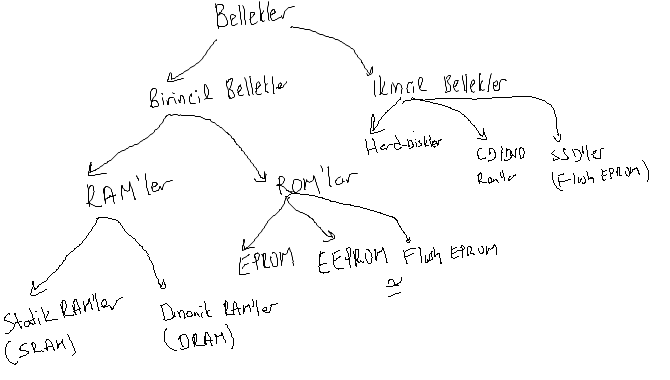 Bellekler
Birincil Bellekle
İkincil Bellekler
Hard-Diskler
CD/DVD
Romlar
SSD'ler
(Flash EPROM)
RAM'ler
ROM'lar
EPROM
EEPROM
Flash EPROM
Statik RAM'ler
(SRAM)
Dinamik RAM'ler
(DRAM)